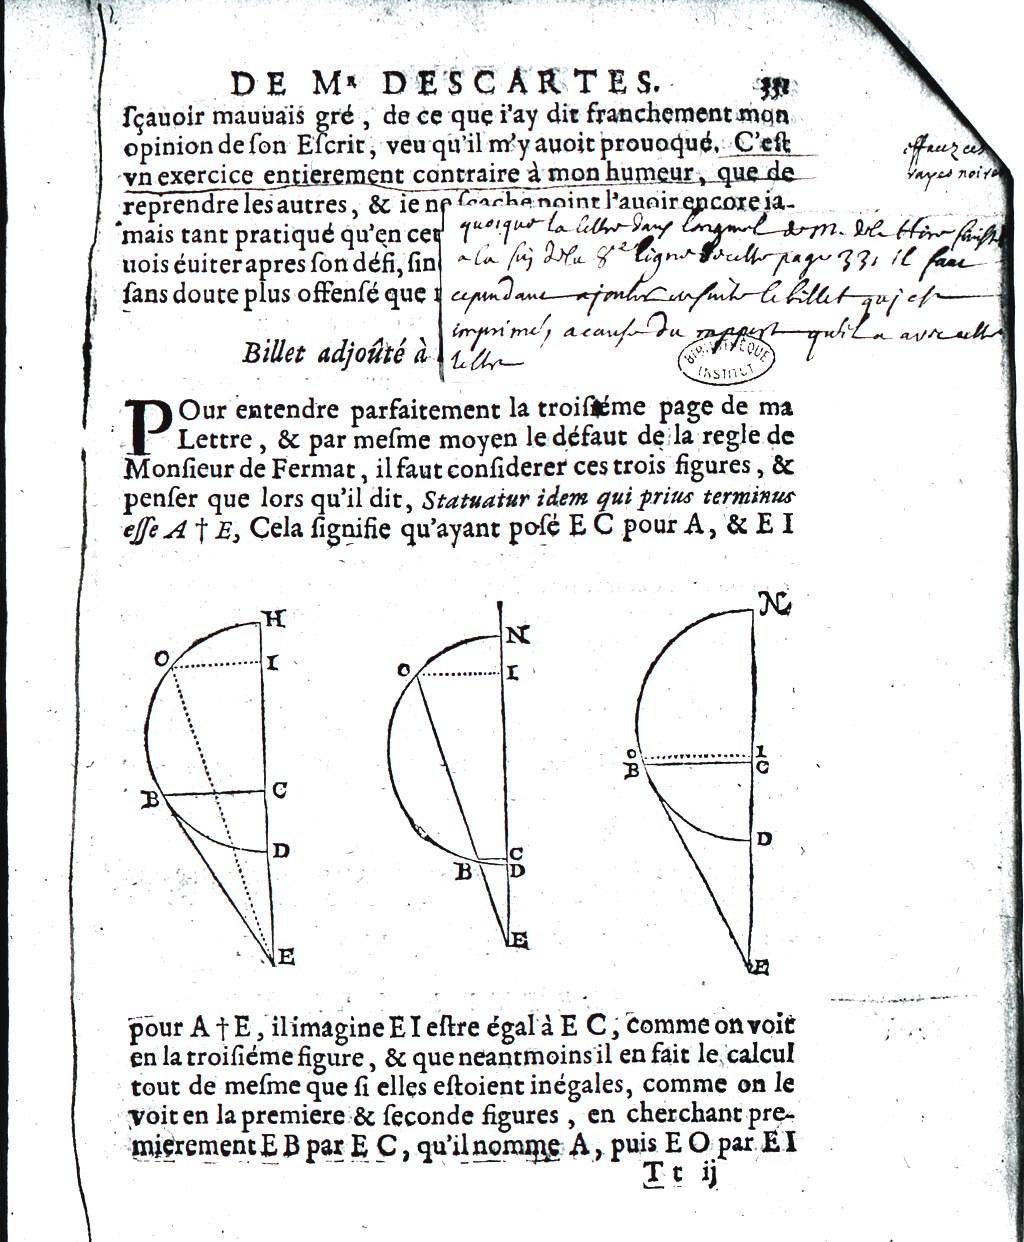 DE Mʀ DESCARTES. 331
ſçauoir mauuais gré, de ce que i'ay dit franchement mon
opinion de ſon Eſcrit, veu qu'il m'y auoit prouoqué. C'eſt
vn exercice entierement contraire à mon humeur, que de
reprendre les autres, & ie ne ſçache point l'auoir encore ia-
mais tant pratiqué qu'en cet
uois éuiter apres ſon défi, ſin
ſans doute plus offenſé que
effacez ces
rayes noires
quoique la lettre dans l'original de M. de la Hire finisse
a la fin de la 8e ligne de cette page 331 il faut
cependant ajouter ensuite le billet qui est
imprimé, a cause du rapport qu'il a avec cette
lettre
BIBLIOTHÈQUE
INSTITUT
Billet adjoûté à
POur entendre parfaitement la troiſiéme page de ma
Lettre, & par meſme moyen le défaut de la regle de
Monſieur de Fermat, il faut conſiderer ces trois figures, &
penſer que lors qu'il dit, Statuatur idem qui prius terminus
eſſe A † E, Cela ſignifie qu'ayant poſé E C pour A, & E I
H
O
I
B
C
D
E
N
O
I
C
B
D
E
N
O
I
B
C
D
E
pour A † E, il imagine E I eſtre égal à E C, comme on voit
en la troiſiéme figure, & que neantmoins il en fait le calcul
tout de meſme que ſi elles eſtoient inégales, comme on le
voit en la premiere & ſeconde figures, en cherchant pre-
mierement E B par E C, qu'il nomme A, puis E O par E I
T t ij